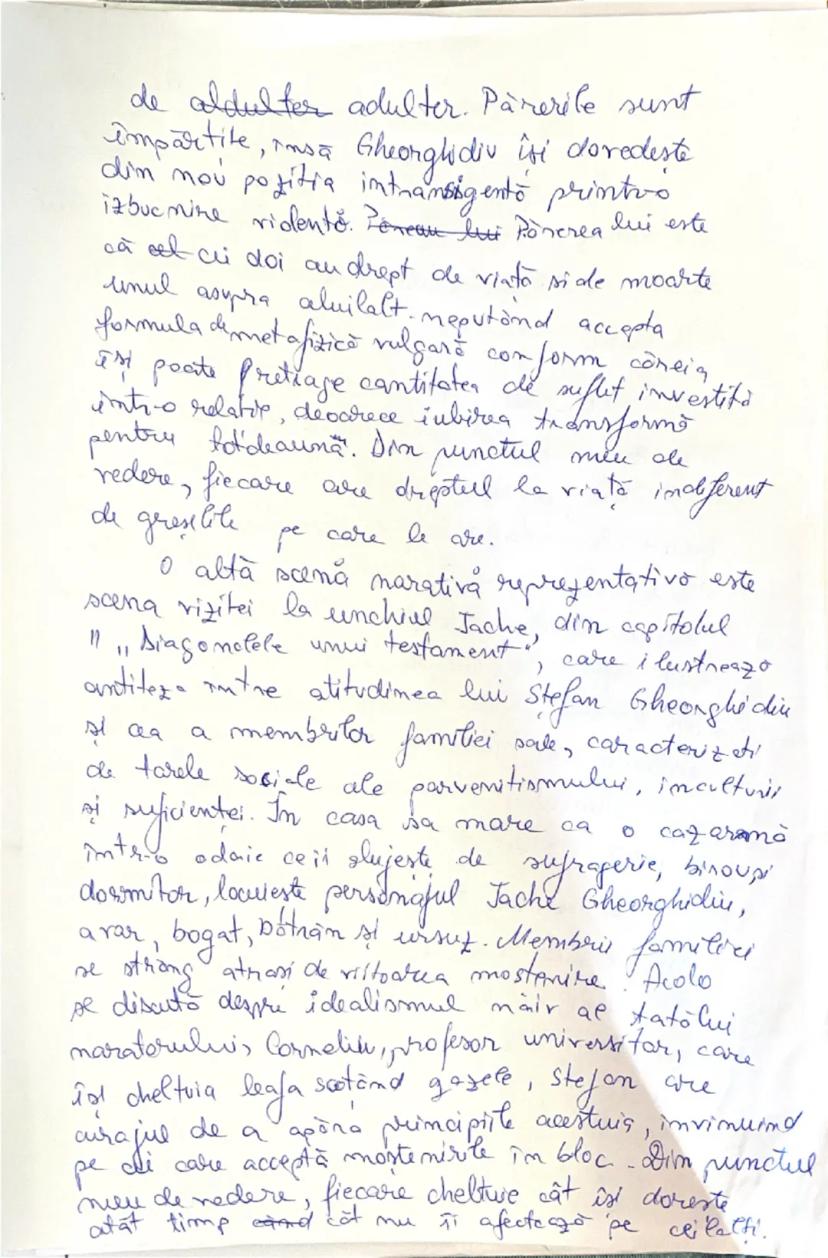 de aldulter adulter. Părerile sunt
împărțite, însă Gheorghidiu își dovedește
din nou poziția intransigentă printr-o
izbucnire violentă. Părerea lui este
că cei doi au drept de viață și de moarte
unul asupra aluilalt. neputând accepta
formula de metafizică vulgară conform căreia
își poate retrage cantitatea de suflet investită
într-o relație, deoarece iubirea transformă
pentru totdeauna". Din punctul meu de
vedere, fiecare are dreptul la viață indiferent
de greșelile pe care le are.
O altă scenă narativă reprezentativă este
scena vizitei la unchiul Tache, din capitolul
" „Diagonalele unui testament", care ilustrează
antiteza între atitudinea lui Ștefan Gheorghidiu
și cea a membrilor familiei sale, caracterizați
de tarele sociale ale parvenitismului, inculturii
și suficienței. În casa sa mare ca o cazarmă
într-o odaie ce îi slujește de sufragerie, birou și
dormitor, locuiește personajul Tache Gheorghidiu,
avar, bogat, bătrân și ursuz. Membrii familiei
se strâng atrași de viitoarea moștenire. Acolo
se discută despre idealismul naiv al tatălui
naratorului, Corneliu, profesor universitar, care
își cheltuia leafa scotând gazete, Ștefan are
curajul de a apăra principiile acestuia, învinuind
pe cei care acceptă moștenirile în bloc. Din punctul
meu de vedere, fiecare cheltuie cât își dorește
atât timp când cât nu îi afectează pe ceilalți.